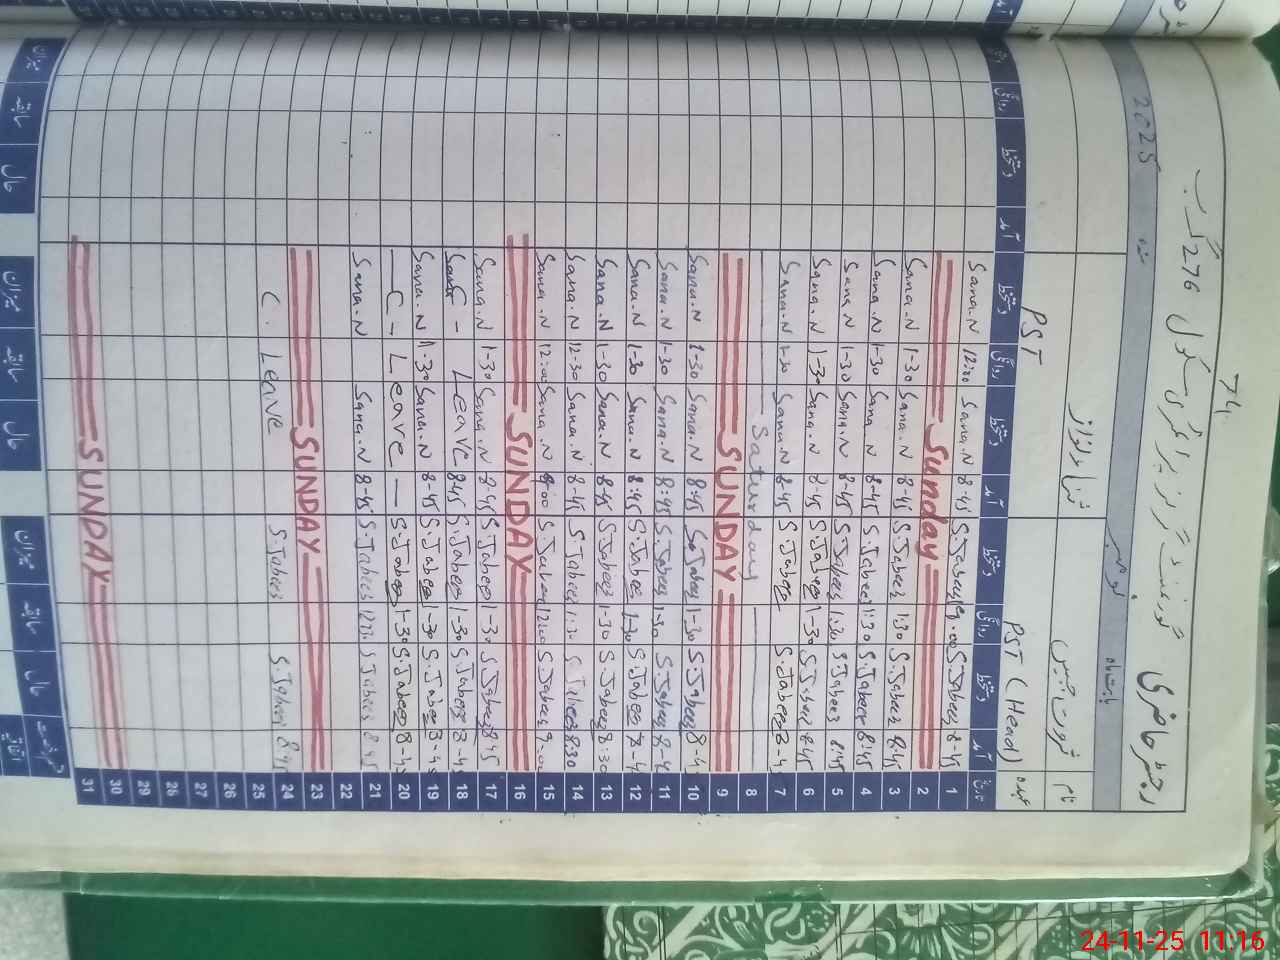 74
رجسٹر حاضری گورنمنٹ گرلز پرائمری سکول 276 گ ب
بابت ماہ نومبر سنہ 2025
نام ثروت جبیں ثنا نواز
عہدہ PST (Head) PST
تاریخ آمد دستخط روانگی دستخط آمد دستخط روانگی دستخط آمد دستخط روانگی
1 8-45 S.Jabeen S.Jabeen 8-45 Sana.N 12:00 Sana.N
2 Sunday
3 8-45 S.Jabeen 1:30 S.Jabeen 8-45 Sana.N 1-30 Sana.N
4 8:45 S.Jabeen 1:30 S.Jabeen 8-45 Sana N 1-30 Sana N
5 8:45 S.Jabeen 1:30 S.Jabeen 8-45 Sana.N 1-30 Sana N
6 8:45 S.Jabeen 1-30 S.Jabeen 8-45 Sana.N 1-30 Sana.N
7 S.Jabeen S.Jabeen 8-45 Sana.N 1-30 Sana.N
8 Saturday
9 SUNDAY
10 S.Jabeen 1-30 S.Jabeen 8:45 Sana.N 1-30 Sana.N
11 S.Jabeen 1-30 S.Jabeen 8:45 Sana.N 1-30 Sana.N
12 S.Jabeen 1-30 S.Jabeen 8:45 Sana.N 1-30 Sana.N
13 8:30 S.Jabeen 1-30 S.Jabeen 8-45 Sana.N 1-30 Sana.N
14 8:30 S.Jabeen 1:30 S Jabeen 8-45 Sana.N 12:30 Sana.N
15 S.Jabeen 12:00 S.Jabeen 9:00 Sana.N 12:00 Sana.N
16 SUNDAY
17 8:45 S.Jabeen 1-30 S.Jabeen 8-45 Sana.N 1-30 Sana.N
18 S.Jabeen 1-30 S.Jabeen 8:45 C - Leave
19 S.Jabeen 1-30 S.Jabeen 8-45 Sana.N 1:30 Sana.N
20 S.Jabeen 1-30 S.Jabeen — C - Leave —
21 8:45 S.Jabeen S.Jabeen 8-45 Sana.N Sana.N
22
23 SUNDAY
24 8:45 S.Jabeen S.Jabeen C. Leave
25
26
27
28
29
30 SUNDAY
31
رخصت اتفاقیہ حال سابقہ میزان حال سابقہ میزان حال سابقہ میزان
24-11-25 11:16